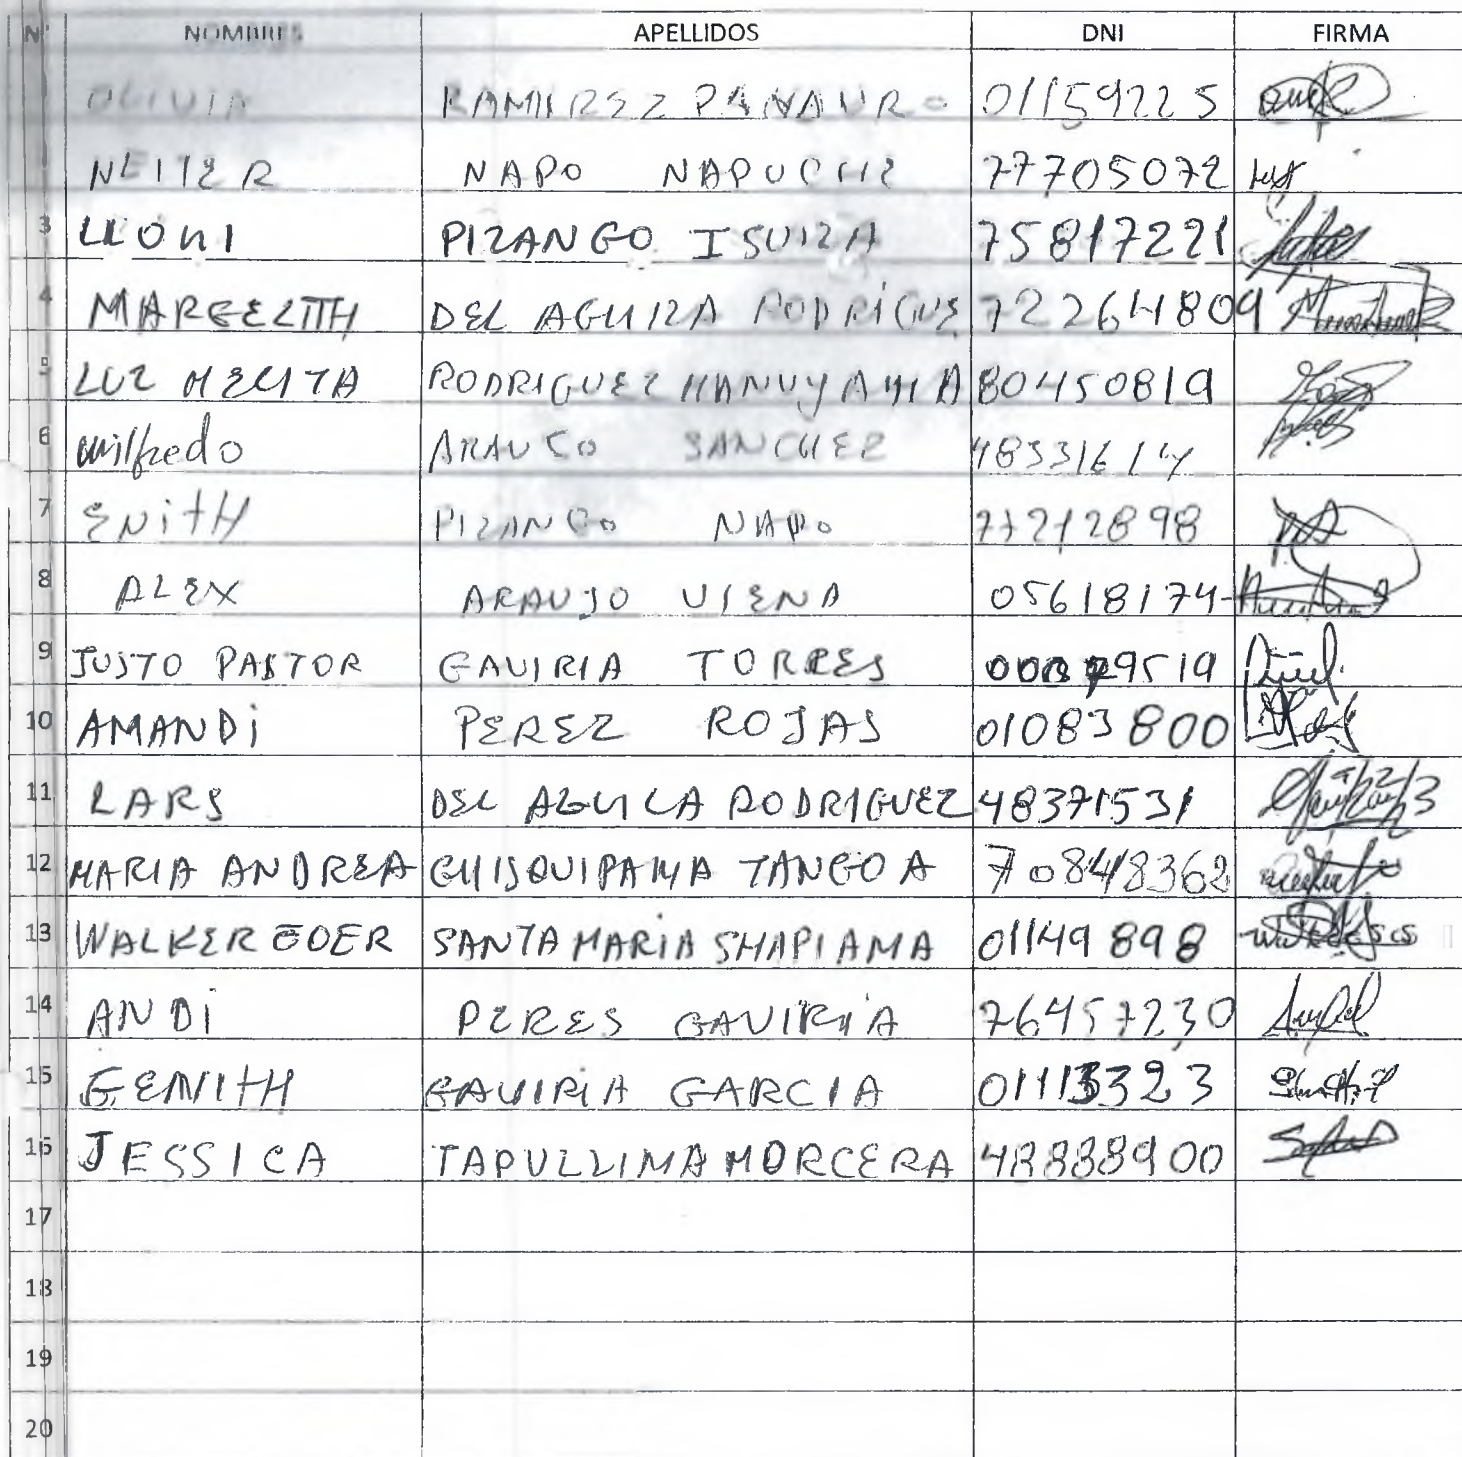 N° NOMBRES APELLIDOS DNI FIRMA
OLIVIA RAMIREZ PANAURO 01159225
NEITER NAPO NAPUCHE 77705072
3 LLONI PIZANGO ISUIZA 75817221
4 MARGELITH DEL AGUILA RODRIGUE 72264809
5 LUZ MELITA RODRIGUEZ MANUYAMA 80450819
6 Wilfredo ARAUCO SANCHEZ 48331614
7 ENITH PIZANGO NAPO 77212898
8 ALEX ARAUJO VIENA 05618174
9 JUSTO PASTOR GAVIRIA TORRES
10 AMANDI PEREZ ROJAS 01083800
11 LARS DEL AGUILA RODRIGUEZ 48371531
12 MARIA ANDREA CHISQUIPAMA TANGOA
13 WALKER EDER SANTA MARIA SHAPIAMA 01149898
14 ANDI PERES GAVIRIA 76457230
15 GENITH GAVIRIA GARCIA 01113323
16 JESSICA TAPULLIMA MORCERA 48838900
17
18
19
20